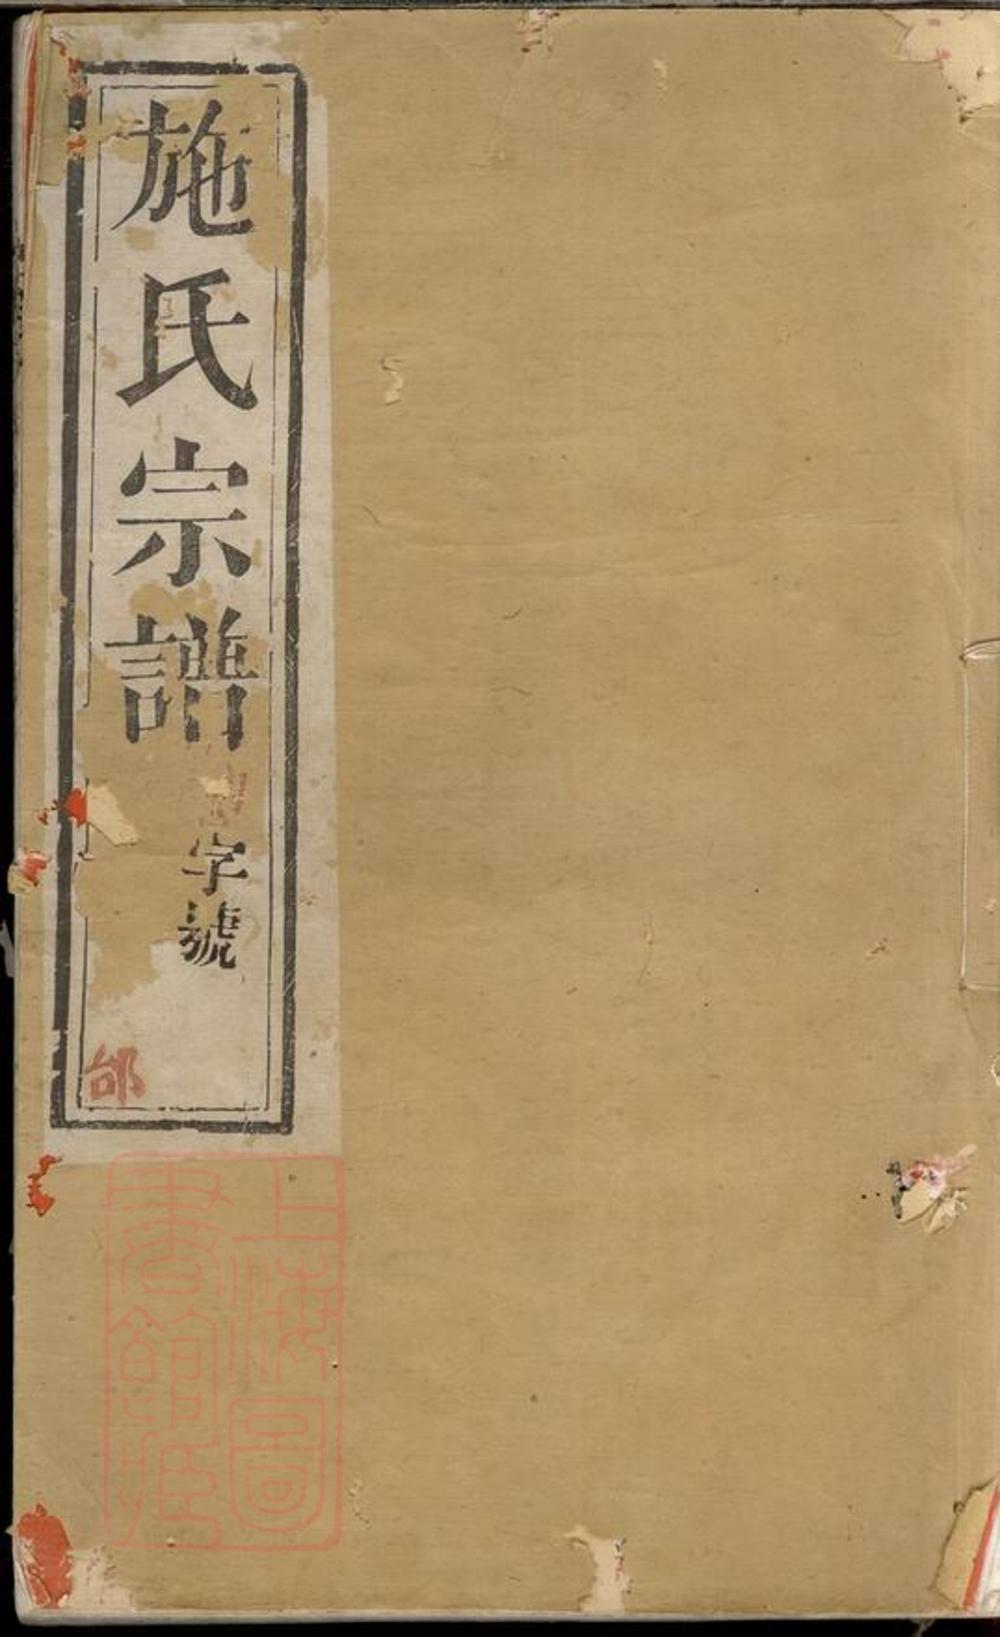 施氏宗譜
字號
上海圖
書館藏